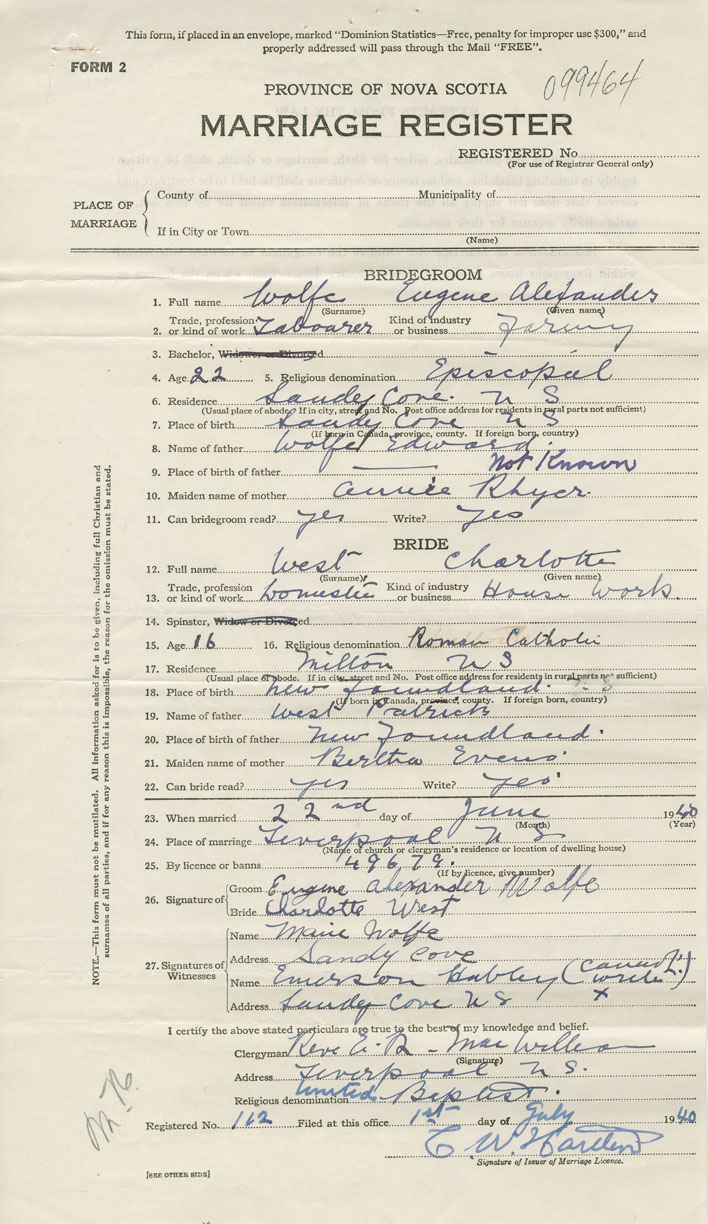 This form, if placed in an envelope, marked "Dominion Statistics—Free, penalty for improper use $300," and
properly addressed will pass through the Mail "FREE".
FORM 2
099464
PROVINCE OF NOVA SCOTIA
MARRIAGE REGISTER
REGISTERED No
(For use of Registrar General only)
PLACE OF MARRIAGE
County of
Municipality of
If in City or Town
(Name)
BRIDEGROOM
1. Full name Wolfe Eugene Alexander
(Surname) (Given name)
2. Trade, profession or kind of work Labourer Kind of industry or business Farming
3. Bachelor, Widower or Divorced
4. Age 22 5. Religious denomination Episcopal
6. Residence Sandy Cove. N S
(Usual place of abode. If in city, street and No. Post office address for residents in rural parts not sufficient)
7. Place of birth Sandy Cove N S
(If born in Canada, province, county. If foreign born, country)
8. Name of father Wolfe Edward.
9. Place of birth of father Not Known
10. Maiden name of mother Annie Rhyer.
11. Can bridegroom read? yes Write? yes
BRIDE
12. Full name West Charlotte
(Surname) (Given name)
13. Trade, profession or kind of work Domestic Kind of industry or business House Work.
14. Spinster, Widow or Divorced
15. Age 16 16. Religious denomination Roman Catholic
17. Residence Milton N S
(Usual place of abode. If in city, street and No. Post office address for residents in rural parts not sufficient)
18. Place of birth New Foundland.
(If born in Canada, province, county. If foreign born, country)
19. Name of father West Patrick
20. Place of birth of father New Foundland.
21. Maiden name of mother Bertha Evens
22. Can bride read? yes Write? yes
23. When married 22nd day of June 1940
(Month) (Year)
24. Place of marriage Liverpool N S
(Name of church or clergyman's residence or location of dwelling house)
25. By licence or banns 49679.
(If by licence, give number)
26. Signature of
Groom Eugene Alexander Wolfe
Bride Charlotte West
27. Signatures of Witnesses
Name Marie Wolfe
Address Sandy Cove
Name Emerson Habley (cannot write) x
Address Sandy Cove N S
I certify the above stated particulars are true to the best of my knowledge and belief.
Clergyman Reve E. R - Mac William
(Signature)
Address Liverpool N S.
Religious denomination United Baptist.
Registered No. 162 Filed at this office 1st day of July 1940
Signature of Issuer of Marriage Licence.
[SEE OTHER SIDE]
NOTE.—This form must not be mutilated. All information asked for is to be given, including full Christian and
surnames of all parties, and if for any reason this is impossible, the reason for the omission must be stated.